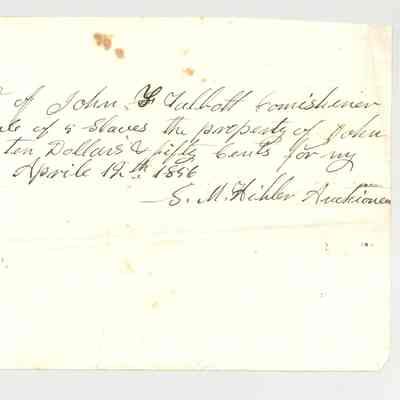 of John Y Talbott Comishiner
ale of 5 Slaves the property of John
ten Dollars & fifty Cents for my
Aprile 12th 1856
S. M. Hibler Auctioneer